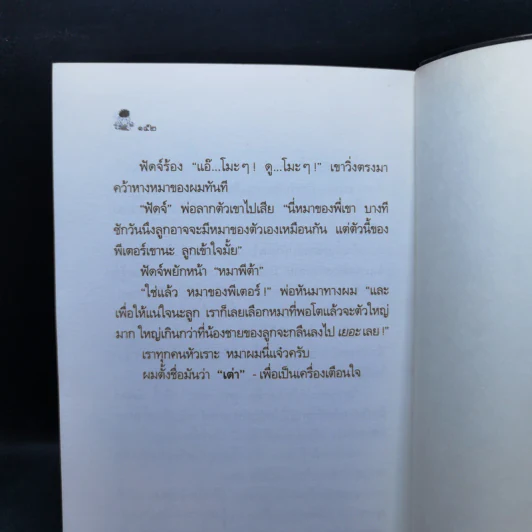 ๑๕๒
ฟัดจ์ร้อง “แอ๊...โมะๆ! ดู...โมะๆ!” เขาวิ่งตรงมา
คว้าหางหมาของผมทันที
“ฟัดจ์” พ่อลากตัวเขาไปเสีย “นี่หมาของพี่เขา บางที
ซักวันนึงลูกอาจจะมีหมาของตัวเองเหมือนกัน แต่ตัวนี้ของ
พีเตอร์เขานะ ลูกเข้าใจมั้ย”
ฟัดจ์พยักหน้า “หมาพีต้า”
“ใช่แล้ว หมาของพีเตอร์!” พ่อหันมาทางผม “และ
เพื่อให้แน่ใจนะลูก เราก็เลยเลือกหมาที่พอโตแล้วจะตัวใหญ่
มาก ใหญ่เกินกว่าที่น้องชายของลูกจะกลืนลงไป เยอะเลย!”
เราทุกคนหัวเราะ หมาผมนี่แจ๋วครับ
ผมตั้งชื่อมันว่า “เต่า” - เพื่อเป็นเครื่องเตือนใจ